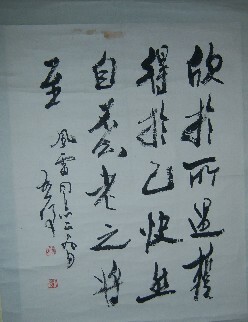 欣於所遇暫
得於己快然
自足不知老之將
至
風雷同志